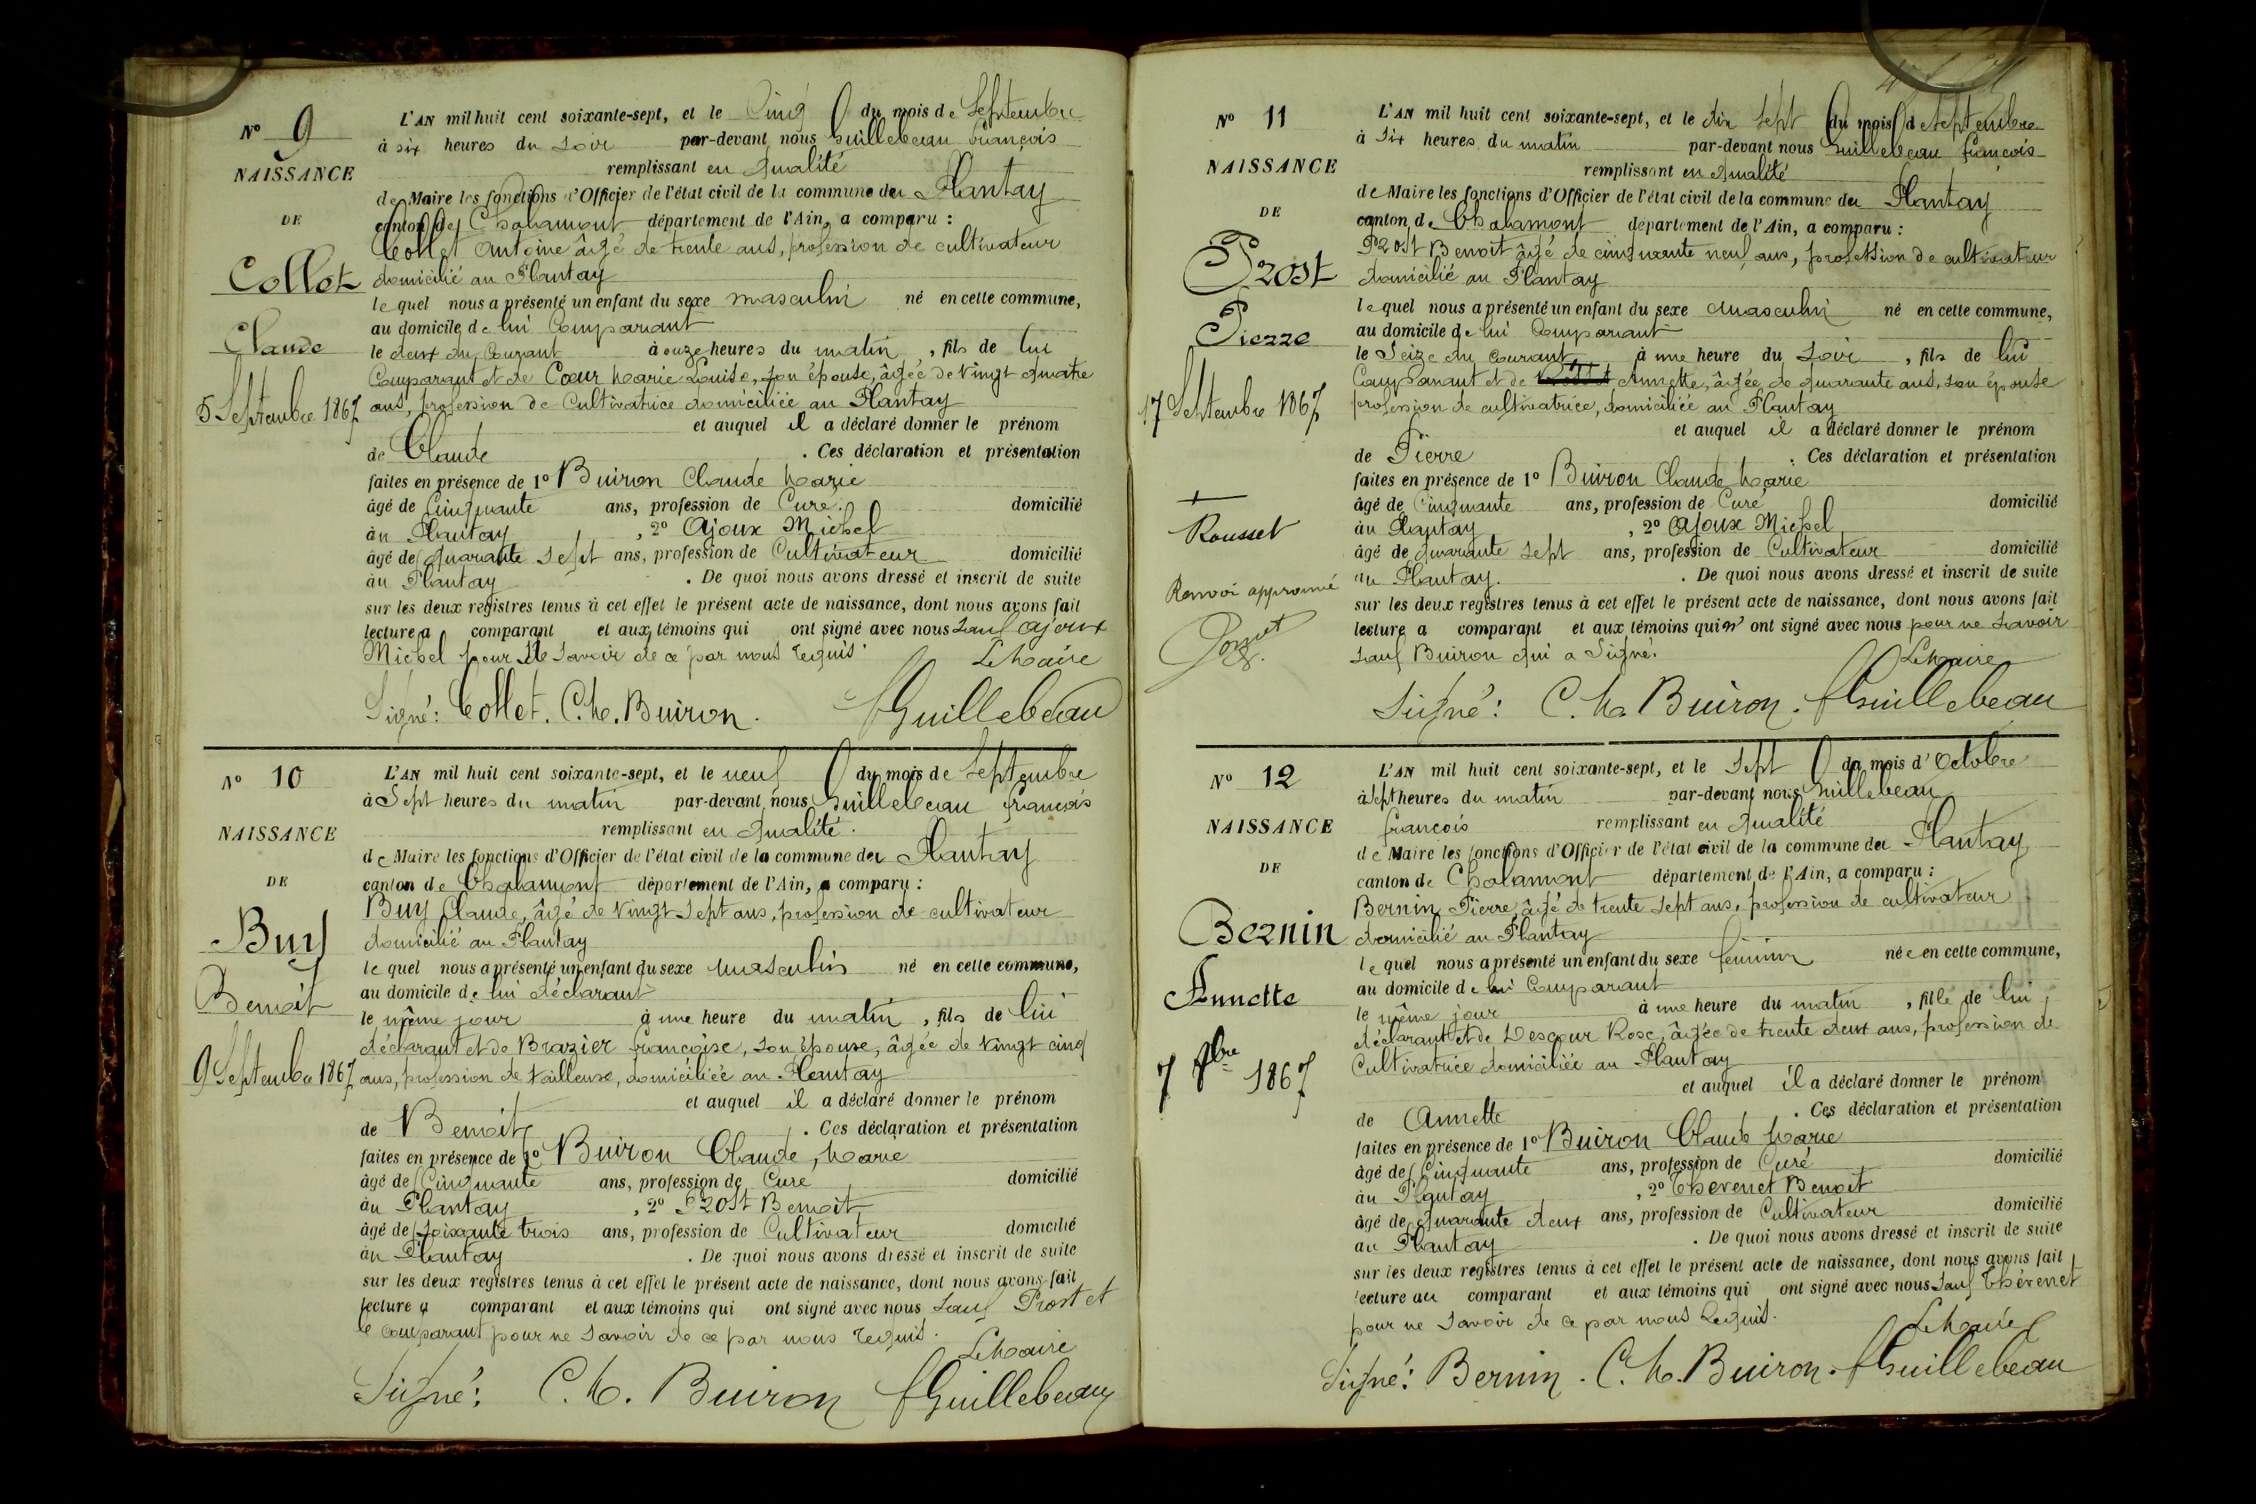 N° 9
NAISSANCE
DE
Collet
Claude
5 Septembre 1867
L'AN mil huit cent soixante-sept, et le Cinq du mois de Septembre
à six heures du soir par-devant nous Guillebeau François
remplissant en qualité
de Maire les fonctions d'Officier de l'état civil de la commune du Plantay
canton de Chalamont département de l'Ain, a comparu :
Collet Antoine âgé de trente ans, profession de cultivateur
domicilié au Plantay
le quel nous a présenté un enfant du sexe masculin né en cette commune,
au domicile de lui Comparant
le deux du Courant à onze heures du matin, fils de lui
Comparant et de Cœur Marie Louise, son épouse, âgée de vingt quatre
ans, profession de Cultivatrice domiciliée au Plantay
et auquel il a déclaré donner le prénom
de Claude. Ces déclaration et présentation
faites en présence de 1° Buiron Claude Marie
âgé de Cinquante ans, profession de Curé domicilié
au Plantay, 2° Ajoux Michel
âgé de quarante sept ans, profession de Cultivateur domicilié
au Plantay. De quoi nous avons dressé et inscrit de suite
sur les deux registres tenus à cet effet le présent acte de naissance, dont nous avons fait
lecture a comparant et aux témoins qui ont signé avec nous sauf Ajoux
Michel pour ne savoir de ce par nous requis.
Le Maire
Signé : Collet. C. M. Buiron. fGuillebeau
N° 10
NAISSANCE
DE
Buy
Benoit
9 Septembre 1867
L'AN mil huit cent soixante-sept, et le neuf du mois de Septembre
à Sept heures du matin par-devant nous Guillebeau françois
remplissant en qualité.
de Maire les fonctions d'Officier de l'état civil de la commune du Plantay
canton de Chalamont département de l'Ain, a comparu :
Buy Claude, âgé de vingt sept ans, profession de cultivateur
domicilié au Plantay
le quel nous a présenté un enfant du sexe masculin né en cette commune,
au domicile de lui déclarant
le même jour à une heure du matin, fils de lui
déclarant et de Brazier françoise, son épouse, âgée de vingt cinq
ans, profession de tailleuse, domiciliée au Plantay
et auquel il a déclaré donner le prénom
de Benoit. Ces déclaration et présentation
faites en présence de 1° Buiron Claude, Marie
âgé de Cinquante ans, profession de Curé domicilié
au Plantay, 2° Prost Benoit
âgé de soixante trois ans, profession de Cultivateur domicilié
au Plantay. De quoi nous avons dressé et inscrit de suite
sur les deux registres tenus à cet effet le présent acte de naissance, dont nous avons fait
lecture a comparant et aux témoins qui ont signé avec nous sauf Prost et
le comparant pour ne savoir de ce par nous requis.
Le Maire
Signé : C. M. Buiron fGuillebeau
N° 11
NAISSANCE
DE
Prost
Pierre
17 Septembre 1867
Rousset
Renvoi approuvé
L'AN mil huit cent soixante-sept, et le dix sept du mois d Septembre
à Six heures du matin par-devant nous Guillebeau françois
remplissant en qualité
de Maire les fonctions d'Officier de l'état civil de la commune du Plantay
canton de Chalamont département de l'Ain, a comparu :
Prost Benoit âgé de cinquante neuf ans, profession de cultivateur
domicilié au Plantay
le quel nous a présenté un enfant du sexe masculin né en cette commune,
au domicile de lui Comparant
le Seize du courant à une heure du soir, fils de lui
Comparant et de Annette, âgée de quarante ans, son épouse
profession de cultivatrice, domiciliée au Plantay
et auquel il a déclaré donner le prénom
de Pierre. Ces déclaration et présentation
faites en présence de 1° Buiron Claude Marie
âgé de Cinquante ans, profession de Curé domicilié
au Plantay, 2° Ajoux Michel
âgé de quarante sept ans, profession de Cultivateur domicilié
au Plantay. De quoi nous avons dressé et inscrit de suite
sur les deux registres tenus à cet effet le présent acte de naissance, dont nous avons fait
lecture a comparant et aux témoins qui n' ont signé avec nous pour ne savoir
sauf Buiron qui a signé.
Le Maire
Signé : C. M. Buiron. fGuillebeau
N° 12
NAISSANCE
DE
Bernin
Annette
7 8bre 1867
L'AN mil huit cent soixante-sept, et le Sept du mois d'Octobre
à sept heures du matin par-devant nous Guillebeau
françois remplissant en qualité
de Maire les fonctions d'Officier de l'état civil de la commune du Plantay
canton de Chalamont département de l'Ain, a comparu :
Bernin Pierre, âgé de trente sept ans, profession de cultivateur
domicilié au Plantay
le quel nous a présenté un enfant du sexe féminin née en cette commune,
au domicile de lui Comparant
le même jour à une heure du matin, fille de lui
déclarant et de Descour Rose, âgée de trente deux ans, profession de
Cultivatrice domiciliée au Plantay
et auquel il a déclaré donner le prénom
de Annette. Ces déclaration et présentation
faites en présence de 1° Buiron Claude Marie
âgé de Cinquante ans, profession de Curé domicilié
au Plantay, 2° Thevenet Benoit
âgé de quarante deux ans, profession de Cultivateur domicilié
au Plantay. De quoi nous avons dressé et inscrit de suite
sur les deux registres tenus à cet effet le présent acte de naissance, dont nous avons fait
lecture au comparant et aux témoins qui ont signé avec nous sauf Thévenet
pour ne savoir de ce par nous requis.
Le Maire
Signé : Bernin. C. M. Buiron. fGuillebeau